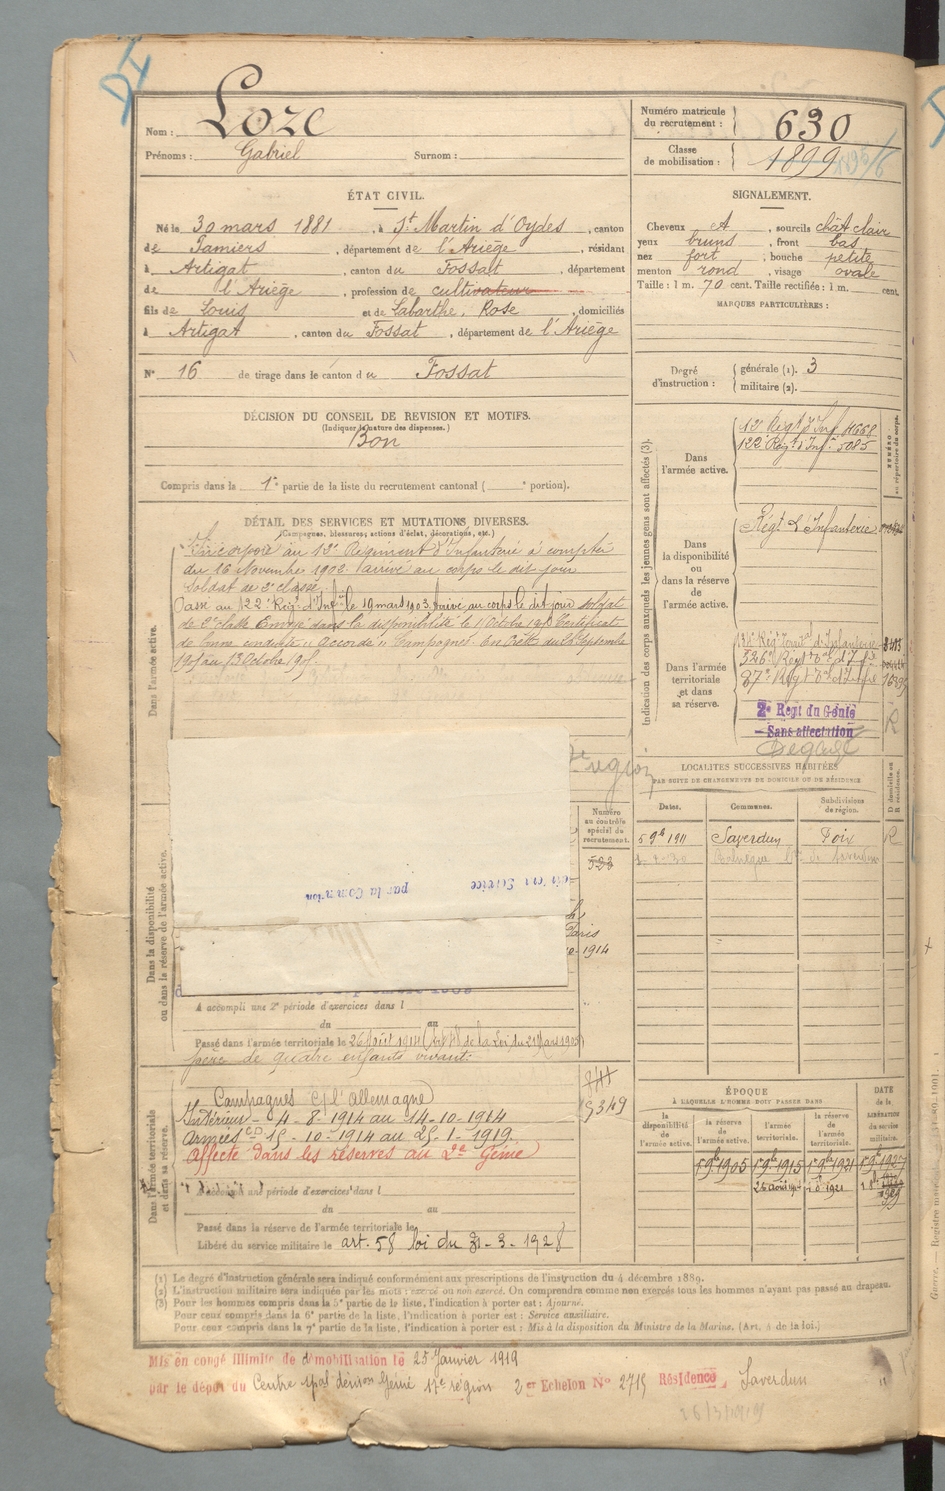 Nom : Loze
Prénoms : Gabriel Surnom :
Numéro matricule du recrutement : 630
Classe de mobilisation : 1899
ÉTAT CIVIL.
Né le 30 mars 1881, à St Martin d'Oydes, canton
de Pamiers, département de l'Ariège, résidant
à Artigat, canton du Fossat, département
de l'Ariège, profession de cultivateur
fils de Louis et de Labarthe, Rose, domiciliés
à Artigat, canton du Fossat, département de l'Ariège
N° 16 de tirage dans le canton du Fossat
SIGNALEMENT.
Cheveux A, sourcils chât clair
yeux bruns, front bas
nez fort, bouche petite
menton rond, visage ovale
Taille : 1 m. 70 cent. Taille rectifiée : 1 m. cent.
MARQUES PARTICULIÈRES :
Degré d'instruction : générale (1). 3
militaire (2).
DÉCISION DU CONSEIL DE REVISION ET MOTIFS.
(Indiquer la nature des dispenses.)
Bon
Compris dans la 1e partie de la liste du recrutement cantonal ( e portion).
DÉTAIL DES SERVICES ET MUTATIONS DIVERSES.
(Campagnes, blessures, actions d'éclat, décorations, etc.)
Dans l'armée active.
Incorporé au 12e Régiment d'Infanterie à compter
du 16 Novembre 1902. Arrivé au corps le dit jour
soldat de 2e classe.
Passé au 122e Régt d'Infie le 19 mars 1903. Arrivé au corps le dit jour soldat
de 2e classe Envoyé dans la disponibilité le Certificat
de bonne conduite "Accordé" Campagnes: En Crète du Septembre
Indication des corps auxquels les jeunes gens sont affectés (3).
Dans l'armée active.
12e Régt d'Inf. 4668
122e Régt d'Infie 5085
NUMÉRO au répertoire du corps.
Dans la disponibilité ou dans la réserve de l'armée active.
Régt d'Infanterie
Dans l'armée territoriale et dans sa réserve.
Régt Territal d'Infanterie
2e Regt du Génie
Sans affectation
Dégagé
R
région
Dans la disponibilité ou dans la réserve de l'armée active.
Numéro au contrôle spécial du recrutement.
Service
par la Commission
Paris
1914
A accompli une 2e période d'exercices dans l
du au
Passé dans l'armée territoriale le 26 Août 1914 de la Loi du 21 Mars 1905
père de quatre enfants vivants.
LOCALITÉS SUCCESSIVES HABITÉES
PAR SUITE DE CHANGEMENTS DE DOMICILE OU DE RÉSIDENCE
D domicile ou R résidence.
Dates. Communes. Subdivisions de région.
5 9bre 1911 Saverdun Foix R
Dans l'armée territoriale et dans sa réserve.
Campagnes c/ l'Allemagne
Intérieur - 4-8-1914 au 14-10-1914
Armées CD 15-10-1914 au 25-1-1919.
Affecté dans les réserves au 2e Génie
5349
A accompli une période d'exercices dans l
du au
Passé dans la réserve de l'armée territoriale le
Libéré du service militaire le art. 58 loi du 31-3-1928
ÉPOQUE
À LAQUELLE L'HOMME DOIT PASSER DANS
la disponibilité de l'armée active. la réserve de l'armée active. l'armée territoriale. la réserve de l'armée territoriale.
DATE de la LIBÉRATION du service militaire.
1er 9bre 1905 1er 9bre 1915 1er 9bre 1921 1er 9bre 1927
(1) Le degré d'instruction générale sera indiqué conformément aux prescriptions de l'instruction du 4 décembre 1889.
(2) L'instruction militaire sera indiquée par les mots : exercé ou non exercé. On comprendra comme non exercés tous les hommes n'ayant pas passé au drapeau.
(3) Pour les hommes compris dans la 5e partie de la liste, l'indication à porter est : Ajourné.
Pour ceux compris dans la 6e partie de la liste, l'indication à porter est : Service auxiliaire.
Pour ceux compris dans la 7e partie de la liste, l'indication à porter est : Mis à la disposition du Ministre de la Marine. (Art. 4 de la loi.)
Mis en congé illimité de démobilisation le 25 Janvier 1919
par le dépôt du Centre Génie 17e région 2er Echelon N° 2715 Résidence Saverdun